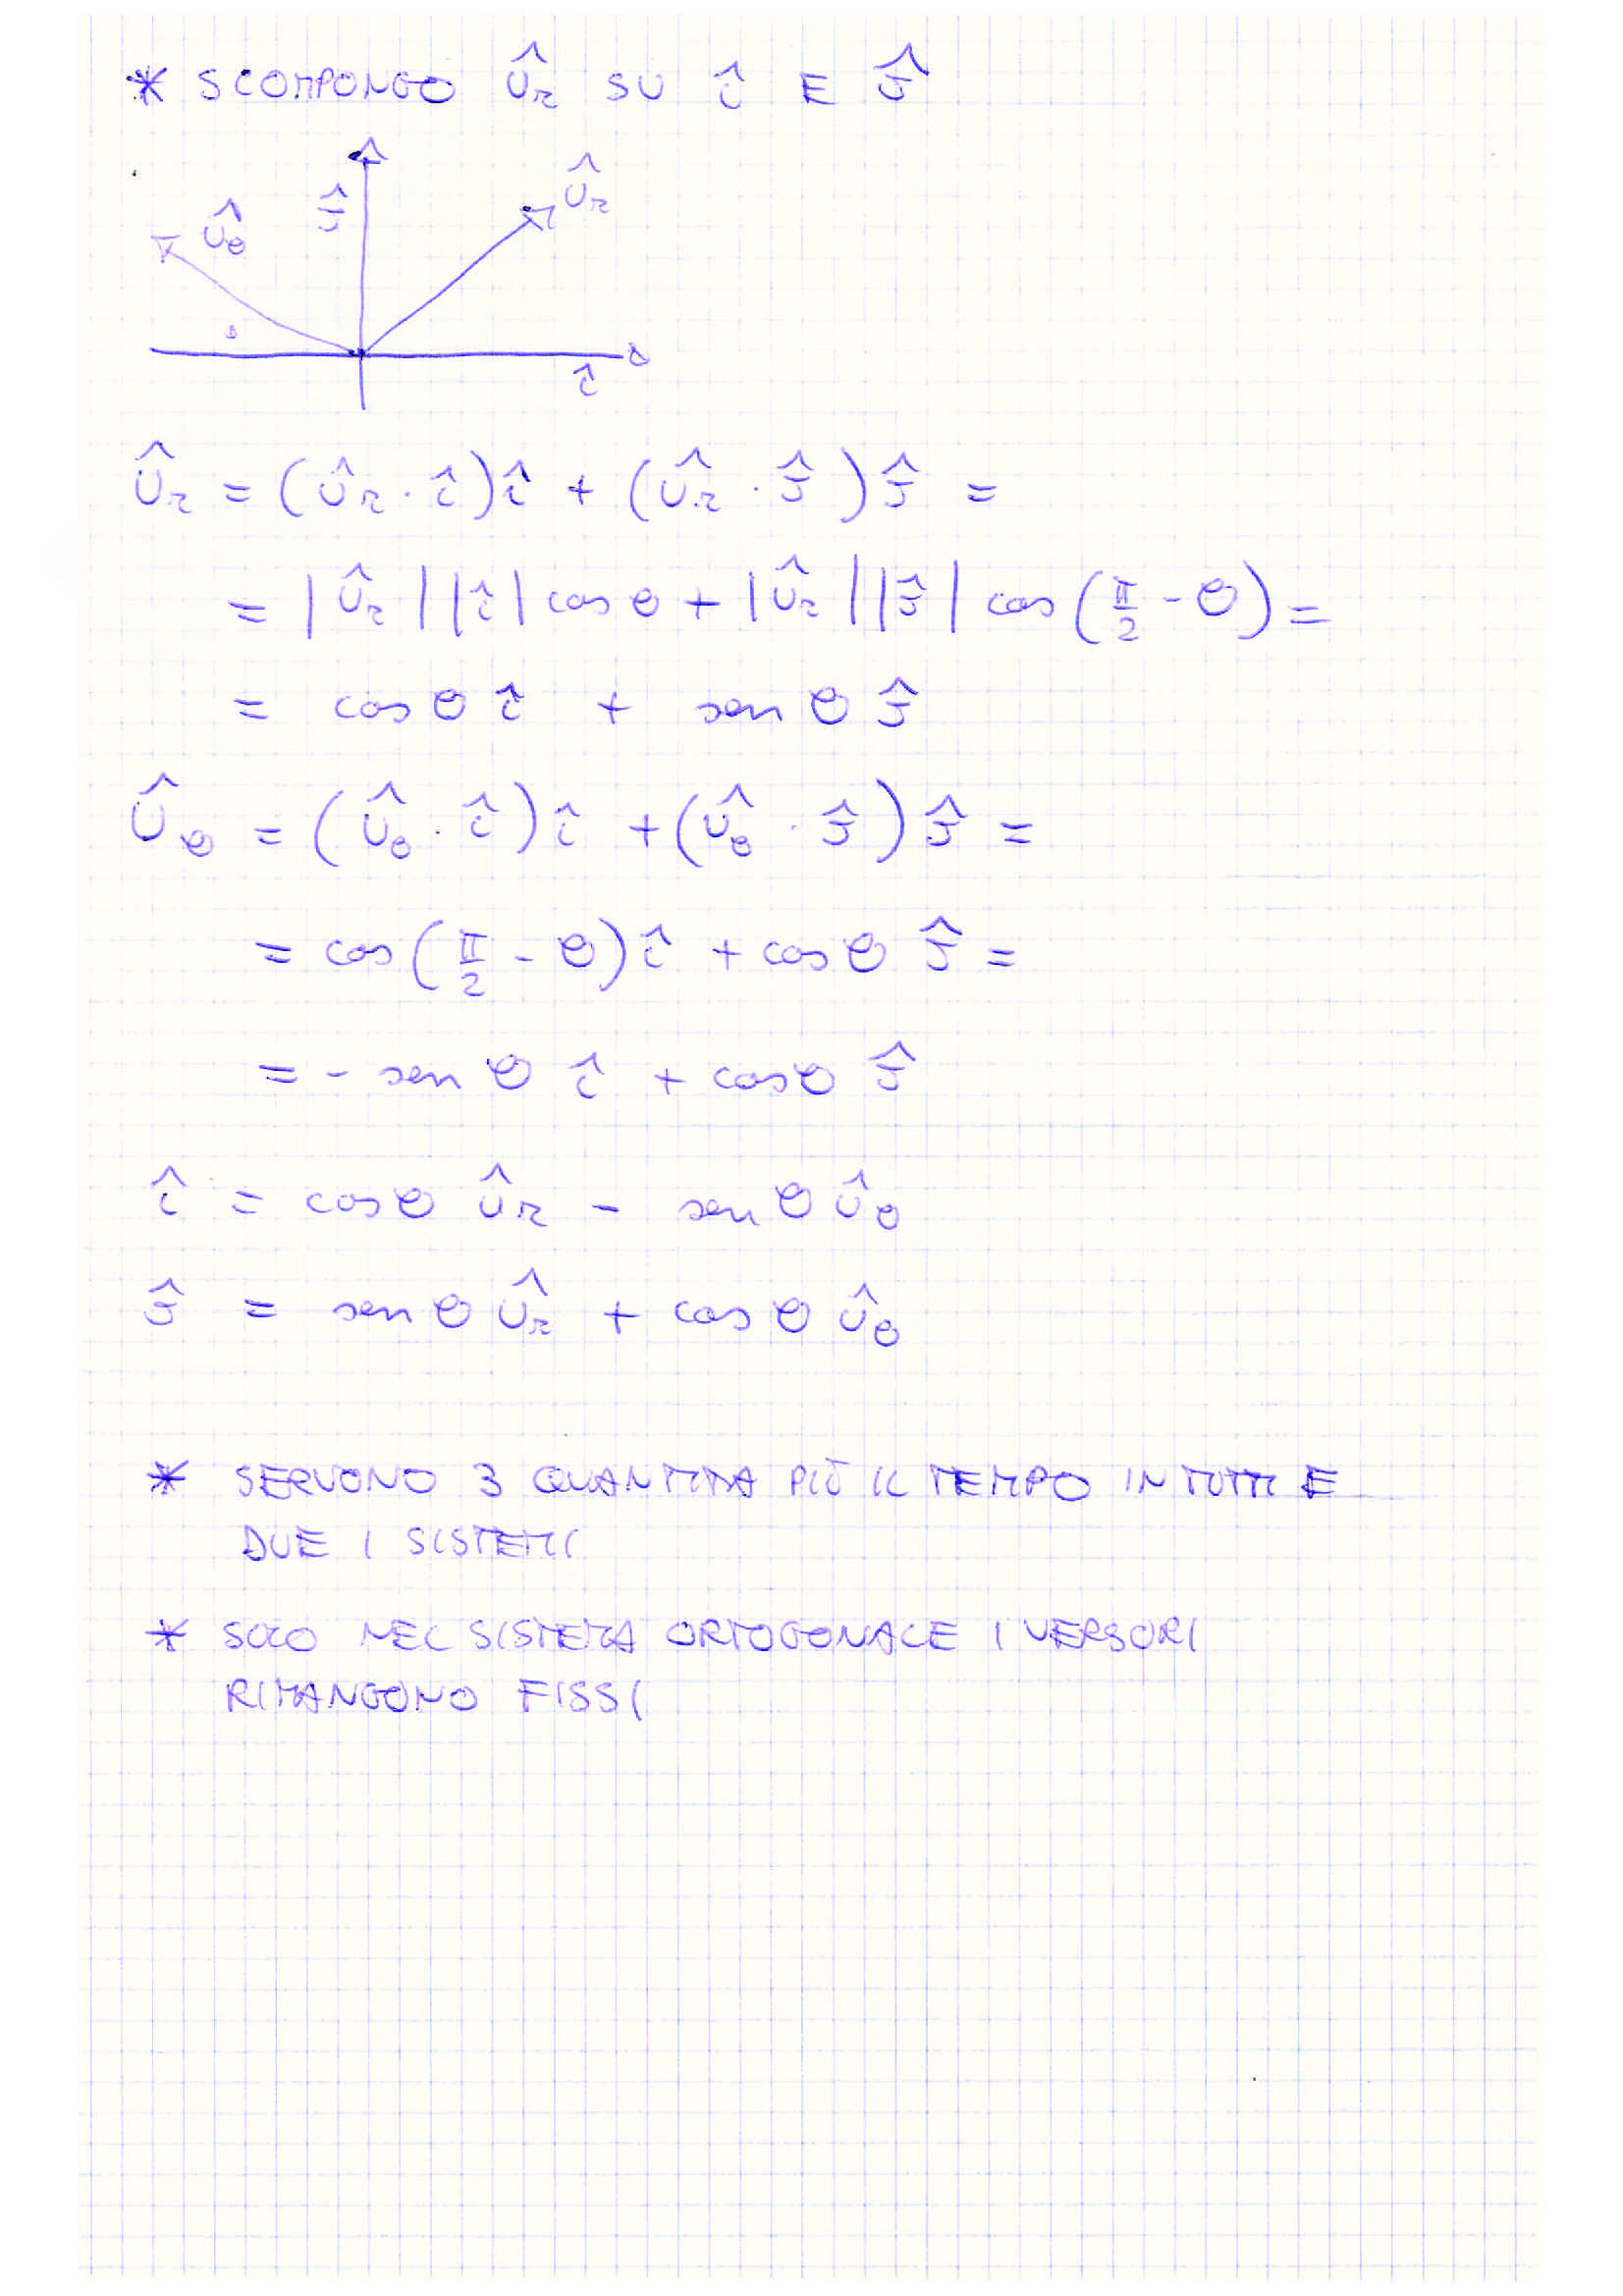 * SCOMPONGO û_r SU î E ĵ
û_θ ĵ û_r
î
û_r = (û_r · î) î + (û_r · ĵ) ĵ =
= |û_r| |î| cos θ + |û_r| |ĵ| cos (π/2 - θ) =
= cos θ î + sen θ ĵ
û_θ = (û_θ · î) î + (û_θ · ĵ) ĵ =
= cos (π/2 - θ) î + cos θ ĵ =
= - sen θ î + cos θ ĵ
î = cos θ û_r - sen θ û_θ
ĵ = sen θ û_r + cos θ û_θ
* SERVONO 3 QUANTITÀ PIÙ IL TEMPO IN TUTTI E
DUE I SISTEMI
* SOLO NEL SISTEMA ORTOGONALE I VERSORI
RIMANGONO FISSI